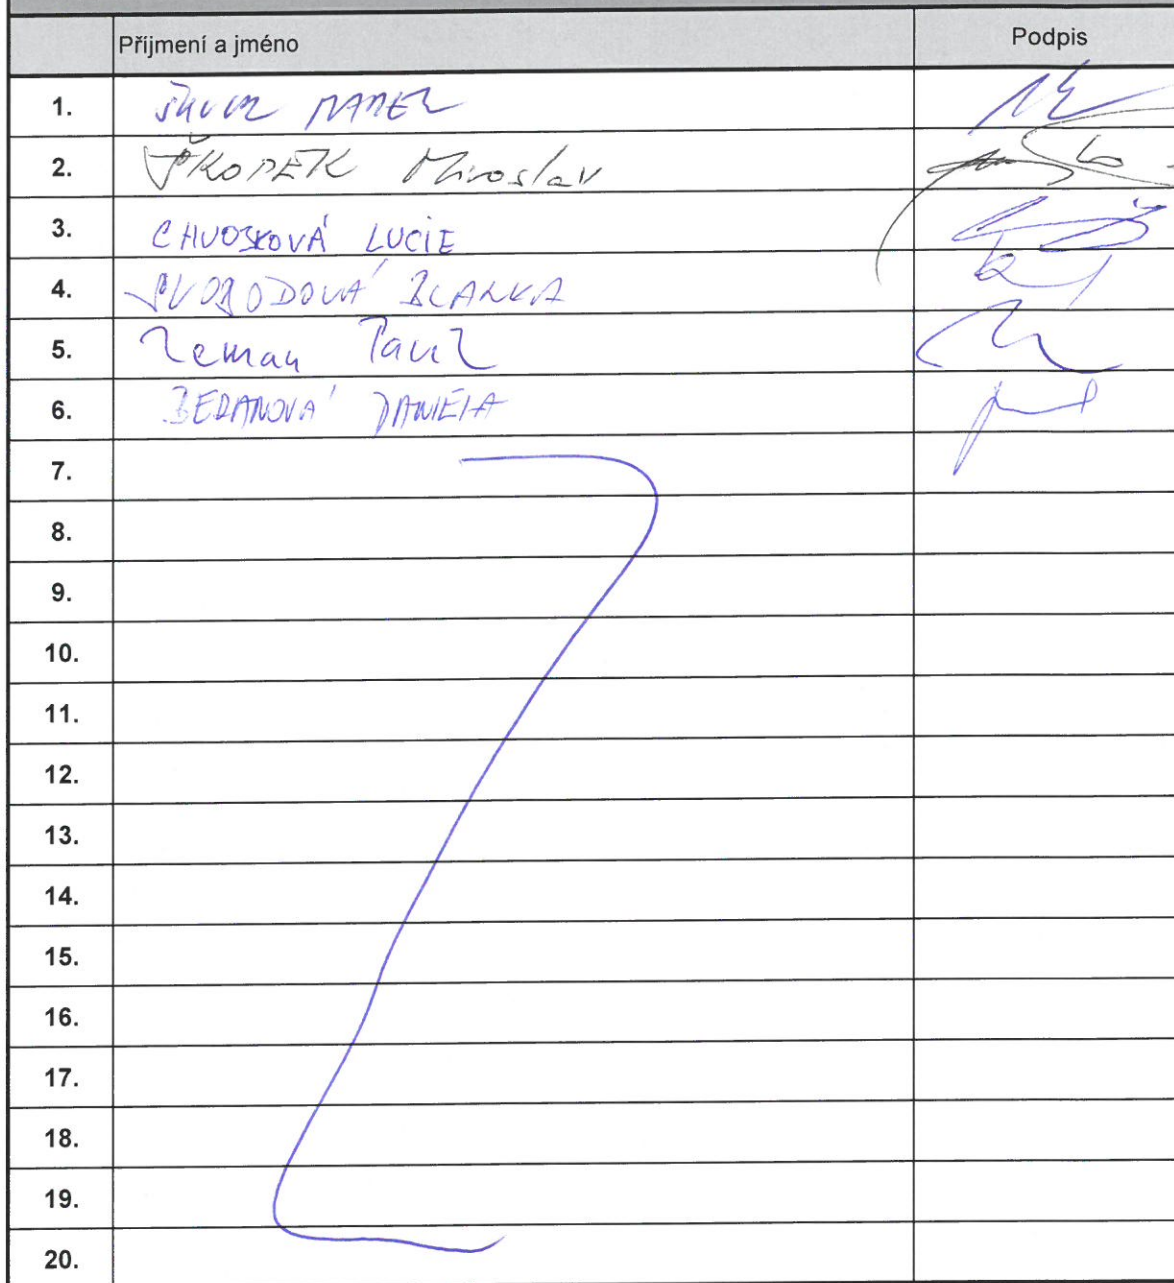 Příjmení a jméno Podpis
1.
2. ŠKOPEK Miroslav
3. CHVOJKOVÁ LUCIE
4. SVOBODOVÁ BLANKA
5. Zeman Pavel
6. BERANOVÁ DANIELA
7.
8.
9.
10.
11.
12.
13.
14.
15.
16.
17.
18.
19.
20.